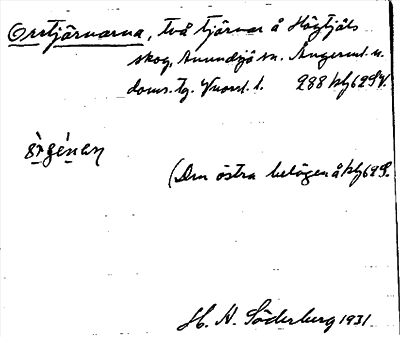 Orrtjärnarna, två tjärnar å Högtjäls
skog, Anundsjö sn. Ångerml. n.
doms. tg. Vnorrl. l. 288 klj 62 SV.
(Den östra belägen å klj 62 S.
H. A. Söderberg 1931.